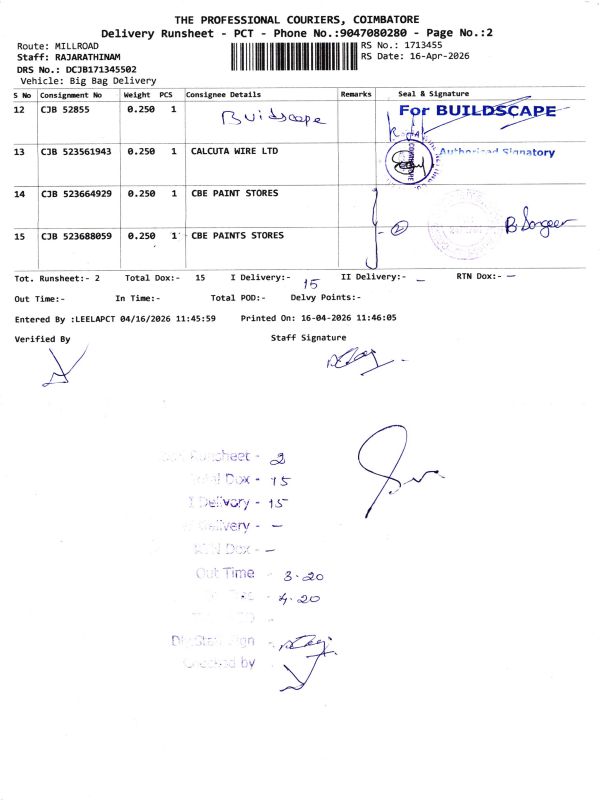 THE PROFESSIONAL COURIERS, COIMBATORE
Delivery Runsheet - PCT - Phone No.:9047080280 - Page No.:2
Route: MILLROAD
RS No.: 1713455
Staff: RAJARATHINAM
RS Date: 16-Apr-2026
DRS No.: DCJB171345502
Vehicle: Big Bag Delivery
S No Consignment No Weight PCS Consignee Details Remarks Seal & Signature
12 CJB 52855 0.250 1 Buidscape For BUILDSCAPE
13 CJB 523561943 0.250 1 CALCUTA WIRE LTD Authorised Signatory
14 CJB 523664929 0.250 1 CBE PAINT STORES
15 CJB 523688059 0.250 1 CBE PAINTS STORES 2
Tot. Runsheet:- 2 Total Dox:- 15 I Delivery:- 15 II Delivery:- – RTN Dox:- –
Out Time:- In Time:- Total POD:- Delvy Points:-
Entered By :LEELAPCT 04/16/2026 11:45:59 Printed On: 16-04-2026 11:46:05
Verified By Staff Signature
Runsheet - 2
Total Dox - 15
I Delivery - 15
Delivery - –
Dox - –
Out Time - 3.20
4.20
Checked by